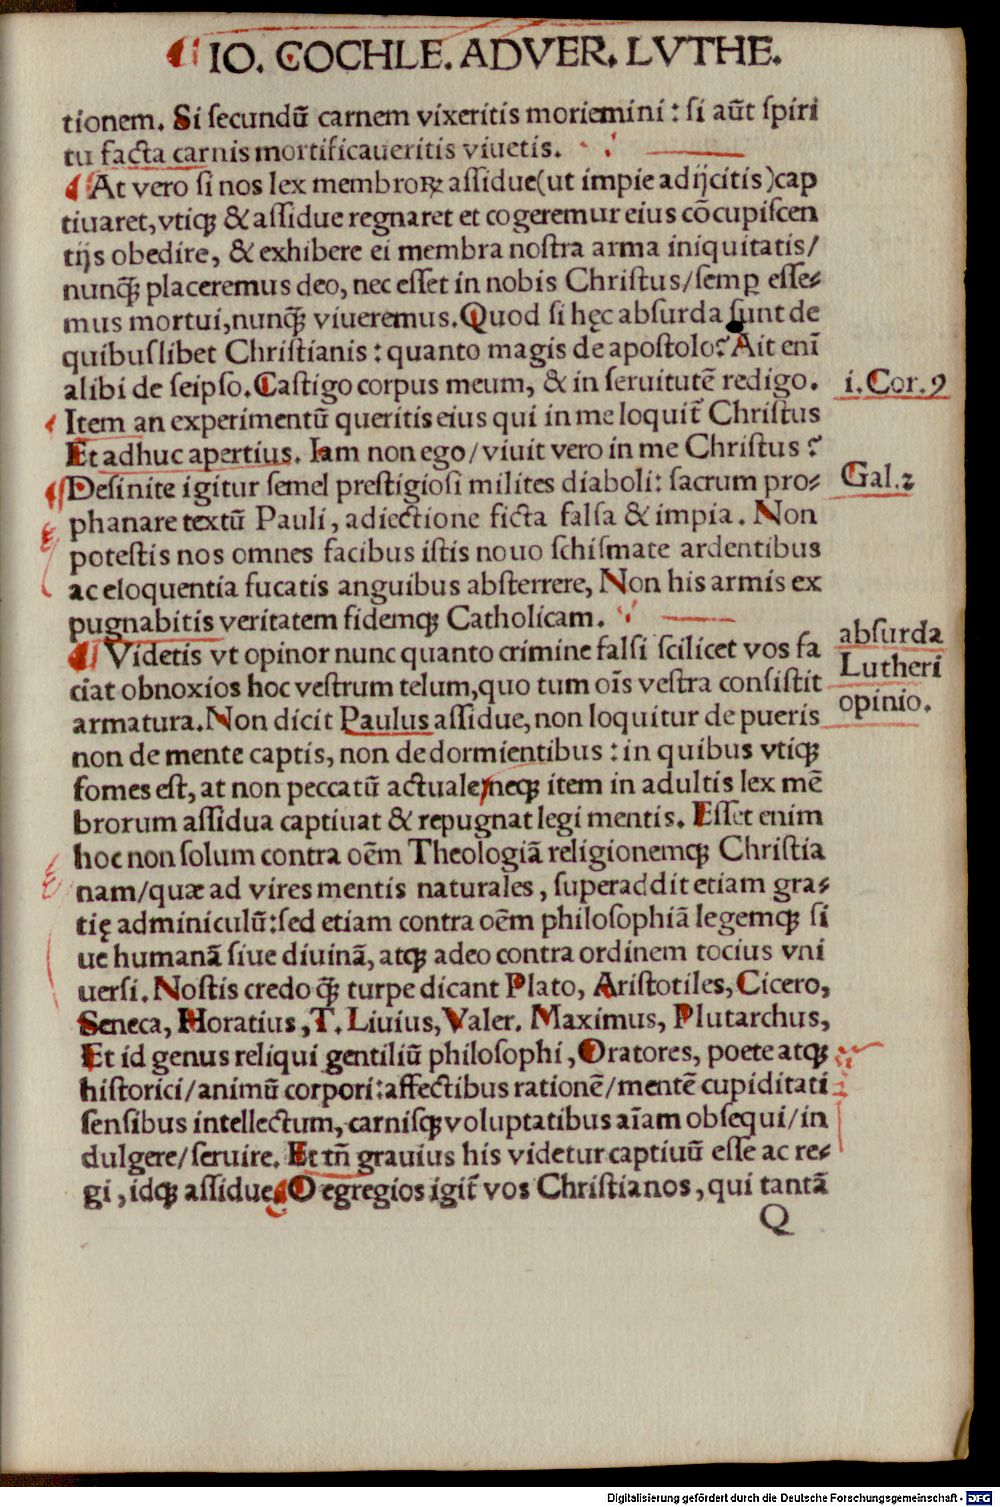 IO. COCHLE. ADVER. LVTHE.
tionem. Si ſecundū carnem vixeritis moriemini: ſi aūt ſpiri
tu facta carnis mortificaueritis viuetis.
At vero ſi nos lex membroꝝ aſſidue(ut impie adijcitis)cap
tiuaret, vtiqꝫ & aſſidue regnaret et cogeremur eius cōcupiſcen
tijs obedire, & exhibere ei membra noſtra arma iniquitatis/
nunq̄ꝫ placeremus deo, nec eſſet in nobis Chriſtus/ſemꝑ eſſe-
mus mortui, nunq̄ꝫ viueremus. Quod ſi hęc abſurda ſunt de
quibuſlibet Chriſtianis: quanto magis de apoſtolo? Ait enī
alibi de ſeipſo. Caſtigo corpus meum, & in ſeruitutē redigo.
i. Cor. 9
Item an experimentū queritis eius qui in me loquit̄ Chriſtus
Et adhuc apertius. Iam non ego/viuit vero in me Chriſtus?
Deſinite igitur ſemel preſtigioſi milites diaboli: ſacrum pro-
Gal. 2
phanare textū Pauli, adiectione ficta falſa & impia. Non
poteſtis nos omnes facibus iſtis nouo ſchiſmate ardentibus
ac eloquentia fucatis anguibus abſterrere, Non his armis ex
pugnabitis veritatem fidemqꝫ Catholicam.
Videtis vt opinor nunc quanto crimine falſi ſcilicet vos fa
absurda
Lutheri
opinio.
ciat obnoxios hoc veſtrum telum, quo tum oīs veſtra conſiſtit
armatura. Non dicit Paulus aſſidue, non loquitur de pueris
non de mente captis, non de dormientibus: in quibus vtiqꝫ
fomes eſt, at non peccatū actuale, neqꝫ item in adultis lex mē
brorum aſſidua captiuat & repugnat legi mentis. Eſſet enim
hoc non ſolum contra oēm Theologiā religionemqꝫ Chriſtia
nam/quæ ad vires mentis naturales, ſuperaddit etiam gra-
tię adminiculū: ſed etiam contra oēm philoſophiā legemqꝫ ſi
ue humanā ſiue diuinā, atqꝫ adeo contra ordinem tocius vni
uerſi. Noſtis credo q̄ꝫ turpe dicant Plato, Ariſtotiles, Cicero,
Seneca, Horatius, T. Liuius, Valer. Maximus, Plutarchus,
Et id genus reliqui gentiliū philoſophi, Oratores, poete atqꝫ
hiſtorici/animū corpori: affectibus rationē/mentē cupiditati
ſenſibus intellectum, carniſqꝫ voluptatibus aīam obſequi/in
dulgere/ſeruire. Et tn̄ grauius his videtur captiuū eſſe ac re-
gi, idqꝫ aſſidue O egregios igit̄ vos Chriſtianos, qui tantā
Q
Digitalisierung gefördert durch die Deutsche Forschungsgemeinschaft - DFG